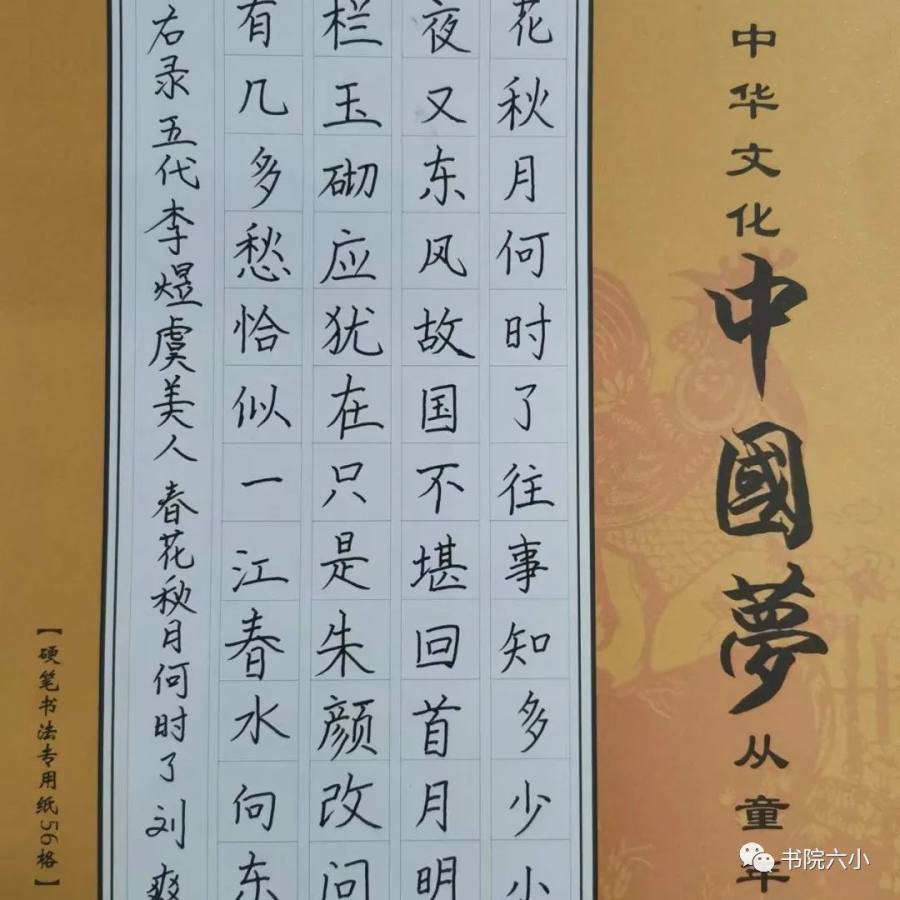 中华文化中國夢从童年
花秋月何时了往事知多少小
夜又东风故国不堪回首月明
栏玉砌应犹在只是朱颜改问
有几多愁恰似一江春水向东
右录五代李煜虞美人 春花秋月何时了 刘爽
【硬笔书法专用纸56格】
书院六小